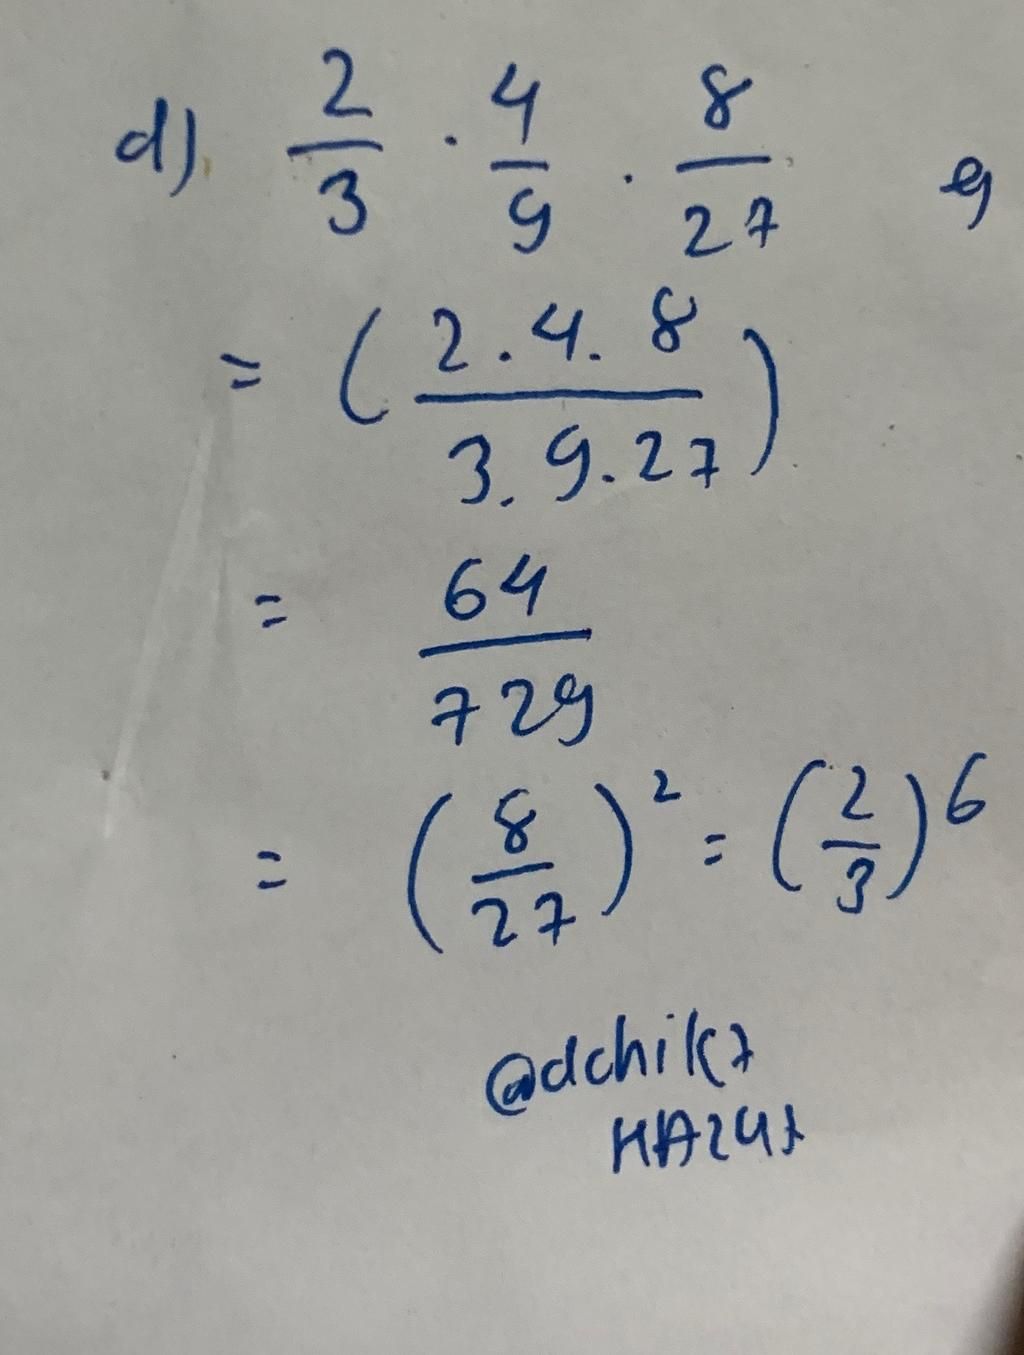 d) 2/3 . 4/9 . 8/27
= (2.4.8 / 3.9.27)
= 64/729
= (8/27)² = (2/3)⁶
@dchik7
HA247